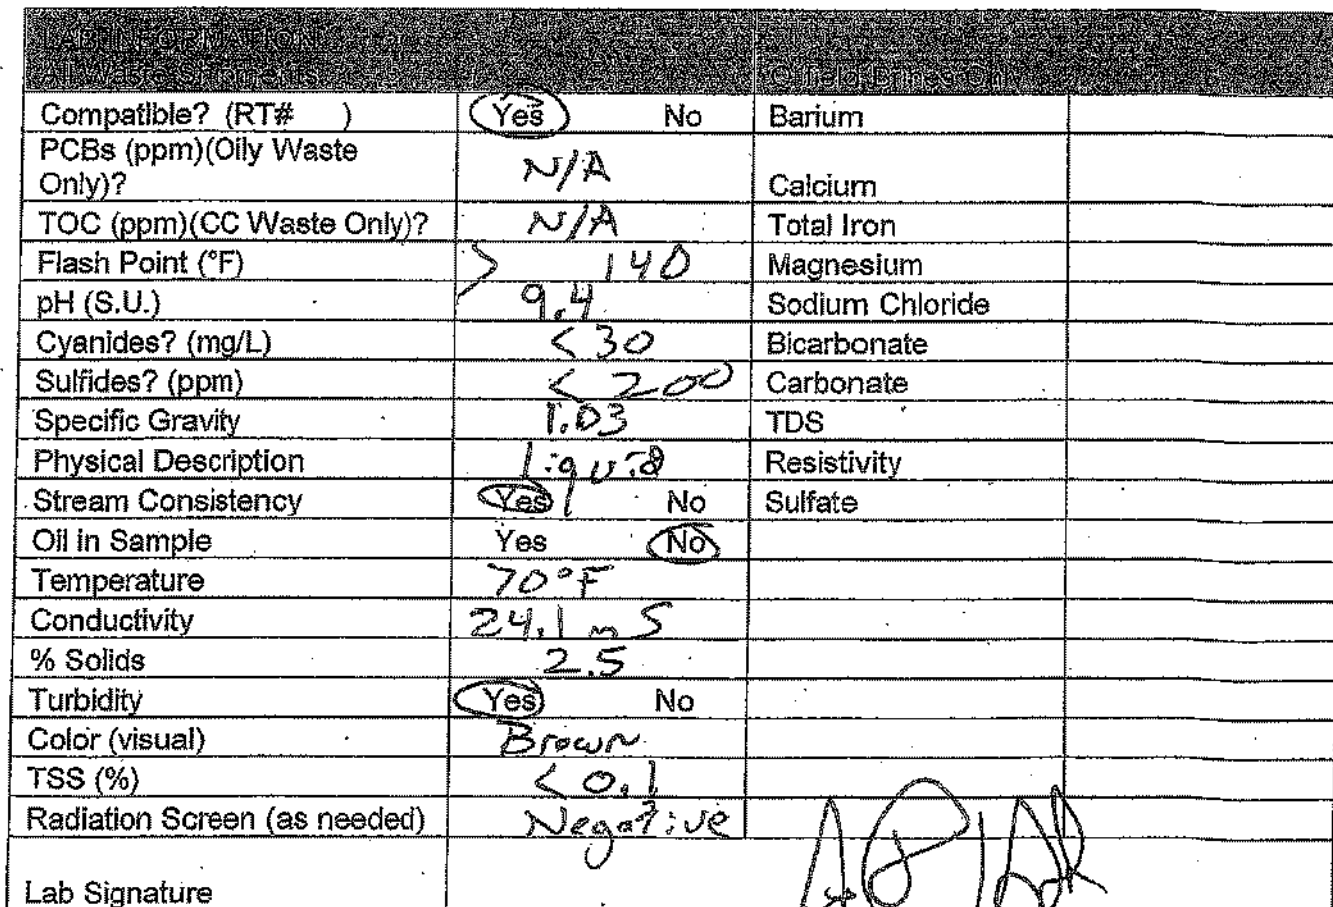 LAB INFORMATION
All Waste Shipments Oilfield Brines Only
Compatible? (RT# ) Yes No Barium
PCBs (ppm)(Oily Waste
Only)? N/A Calcium
TOC (ppm)(CC Waste Only)? N/A Total Iron
Flash Point (°F) > 140 Magnesium
pH (S.U.) 9.4 Sodium Chloride
Cyanides? (mg/L) <30 Bicarbonate
Sulfides? (ppm) <200 Carbonate
Specific Gravity 1.03 TDS
Physical Description liquid Resistivity
Stream Consistency Yes No Sulfate
Oil in Sample Yes No
Temperature 70°F
Conductivity 24.1 mS
% Solids 2.5
Turbidity Yes No
Color (visual) Brown
TSS (%) <0.1
Radiation Screen (as needed) Negative
Lab Signature